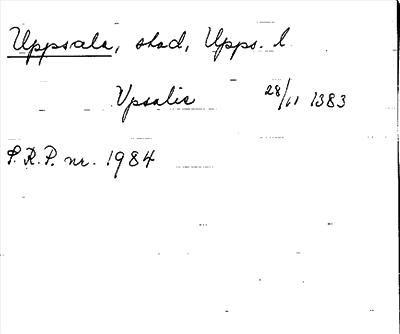 Uppsala, stad, Upps. l
Vpsalie 28/11 1383
S.R.P. nr. 1984